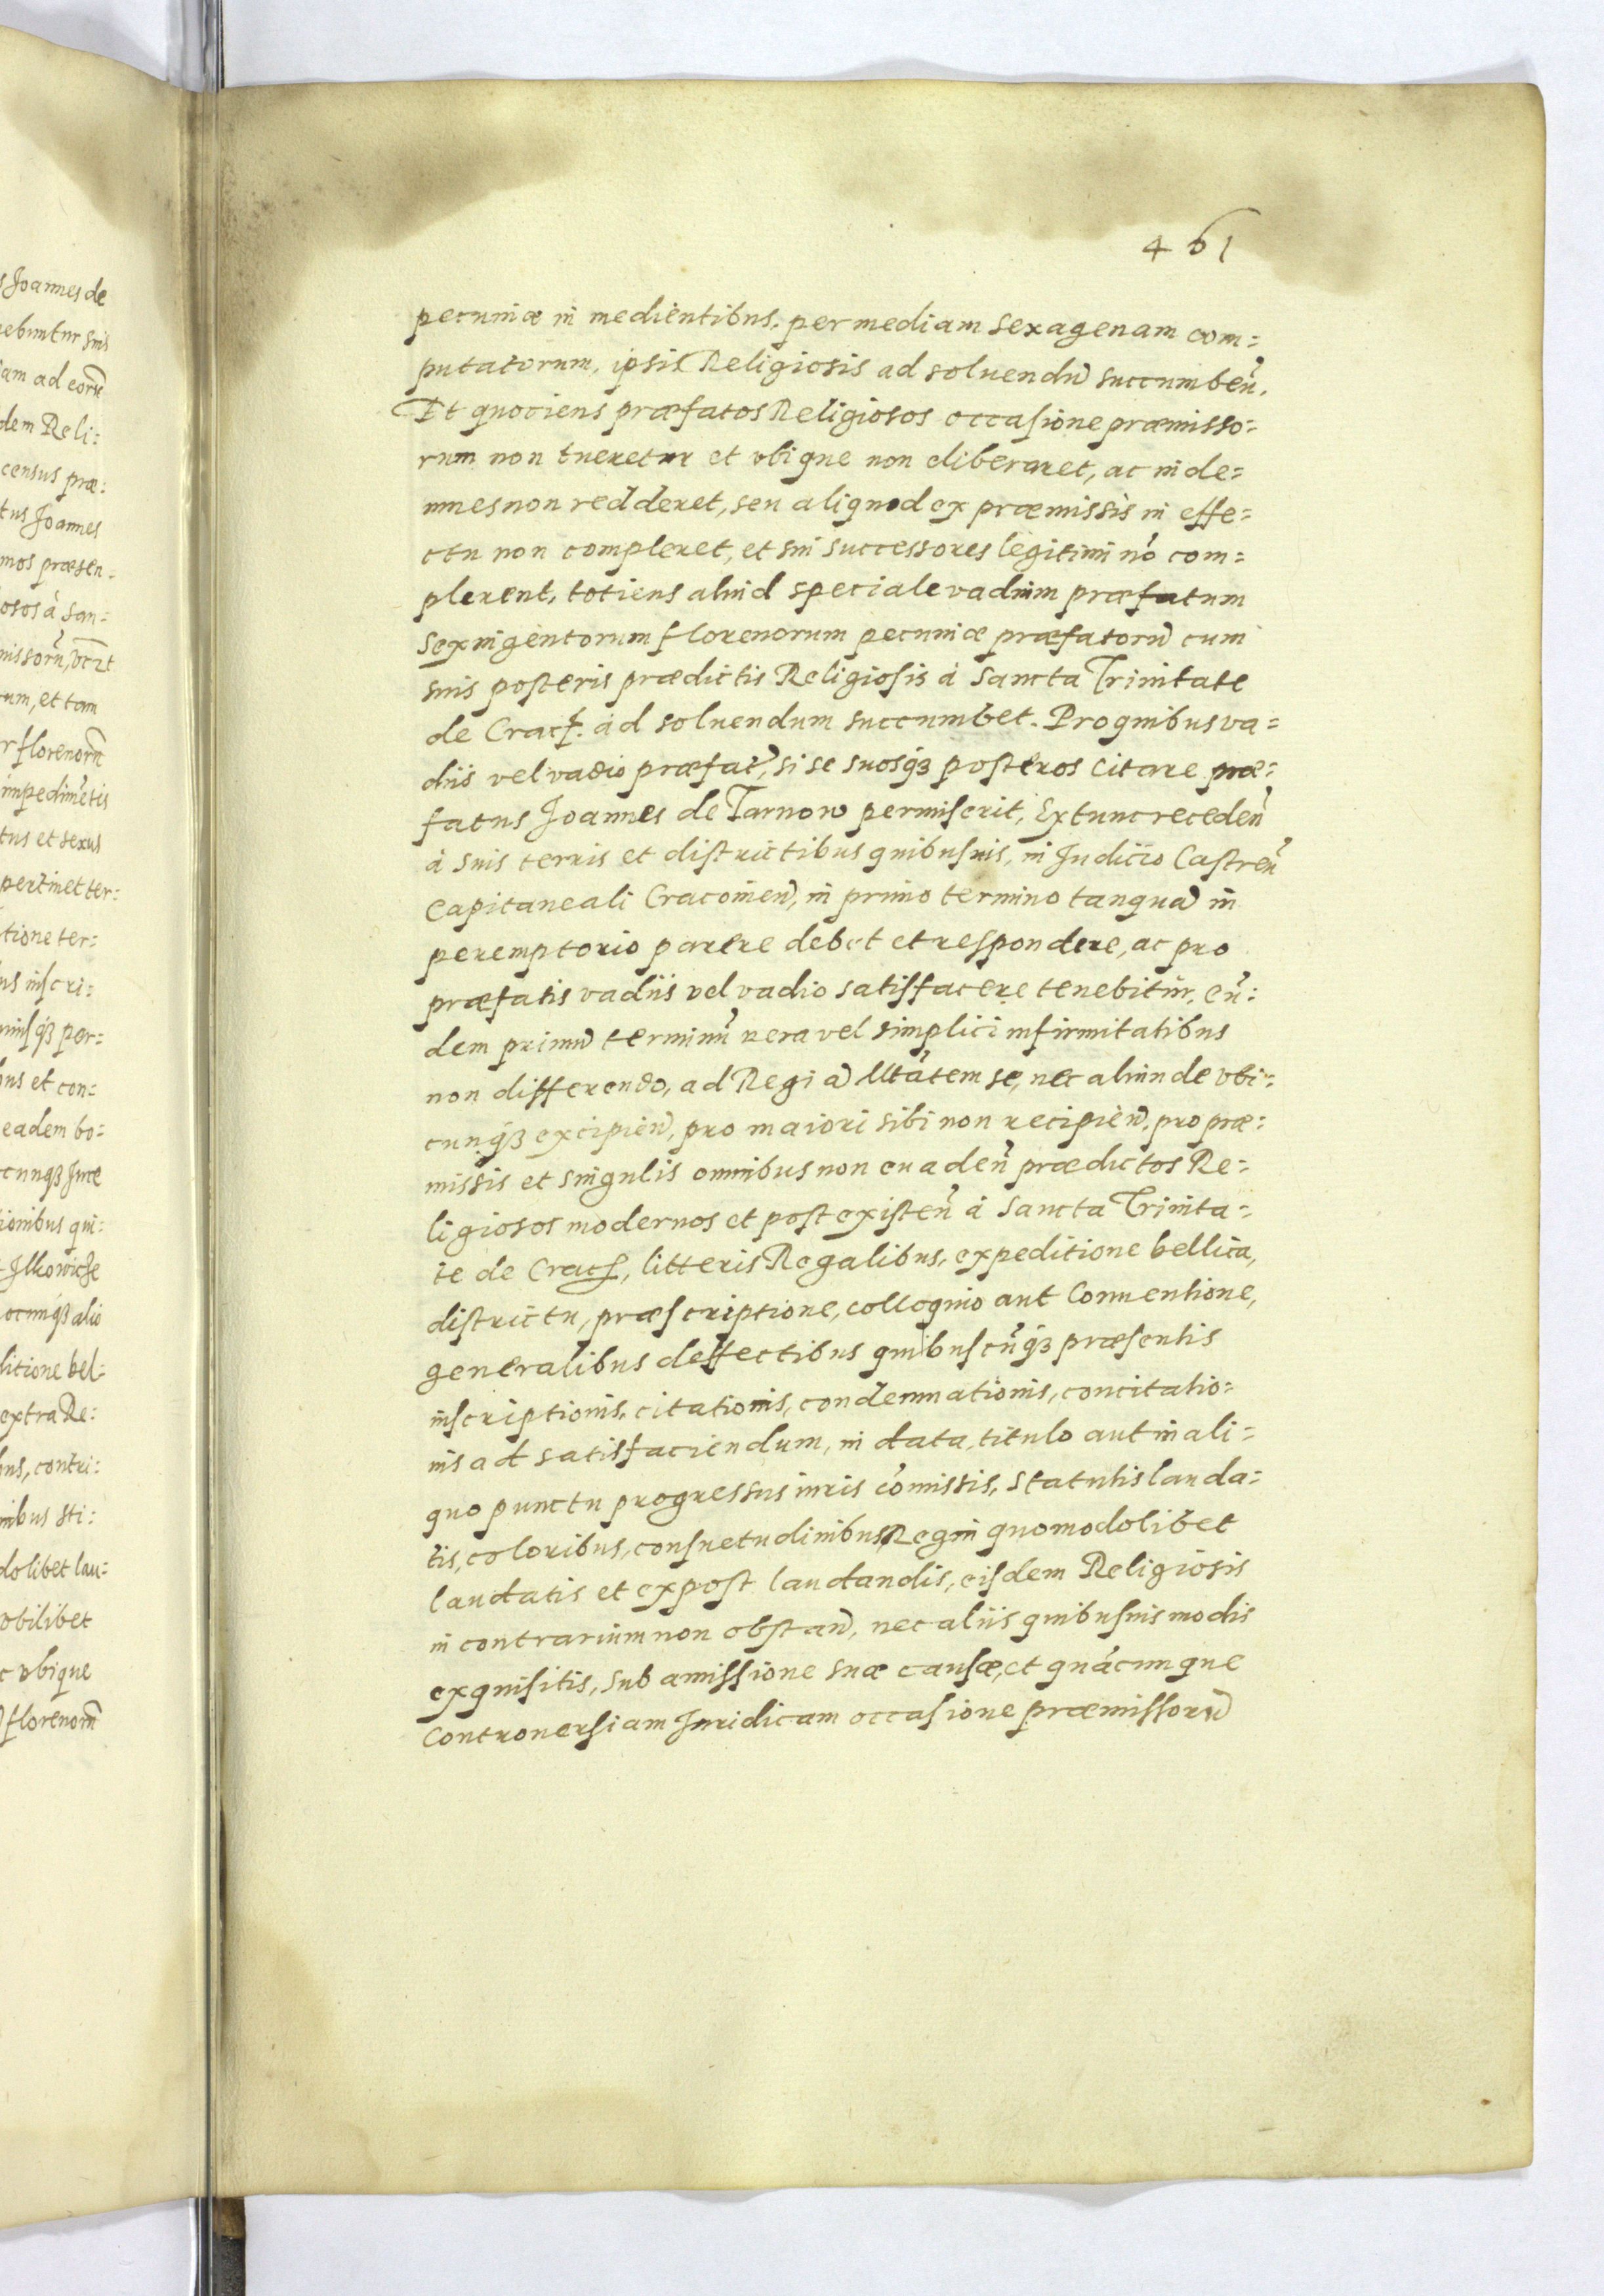 461
pecuniæ in medientibus, per mediam sexagenam com=
putatorum, ipsis Religiosis ad soluendũ succumbeñ.
Et quociens præfatos Religiosos occasione præmisso=
rum non tueretur et vbique non eliberaret, ac inde=
mnes non redderet, seu aliquod ex præmissis in effe=
ctu non compleret, et sui successores legitimi nõ com=
plerent, totiens aliud speciale vadium præfatum
sexingentorum florenorum pecuniæ præfatorũ cum
suis posteris prædictis Religiosis à Sancta Trinitate
de Crac. ad soluendum succumbet. Pro quibus va=
diis vel vadio præfat, si se suosq3 posteros citare præ=
fatus Joannes de Tarnow permiserit, Extunc recedeñ
à suis terris et districtibus quibusuis, in Judicio Castreñ
Capitaneali Cracouieñ, in primo termino tanquã in
peremptorio parere debet et respondere, ac pro
præfatis vadiis vel vadio satisfacere tenebitur, eũ=
dem primũ terminũ uera vel simplici infirmitatibus
non differendo, ad Regiã Mtãtem se, nec aliunde vbi=
cunq3 excipieñ, pro maiori sibi non recipieñ, pro præ=
missis et singulis omnibus non euadeñ prædictos Re=
ligiosos modernos et post existeñ à Sancta Trinita=
te de Crac, litteris Regalibus, expeditione bellica,
districtu, præscriptione, colloquio aut Conuentione,
generalibus deffectibus quibuscũq3 præsentis
inscriptionis, citationis, condemnationis, concitatio=
nis ad satisfaciendum, in data, titulo aut in ali=
quo punctu progressus iuris cõmissis, statutis lauda=
tis, coloribus, consuetudinibus Regni quomodolibet
laudatis et expost laudandis, eisdem Religiosis
in contrarium non obstañ, nec aliis quibusuis modis
exquisitis, sub amissione suæ causæ, et quácunque
Controuersiam Juridicam occasione præmissorũ